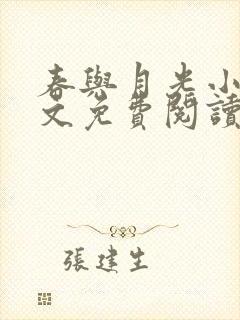 春與月光小
文免費閱讀
張建生